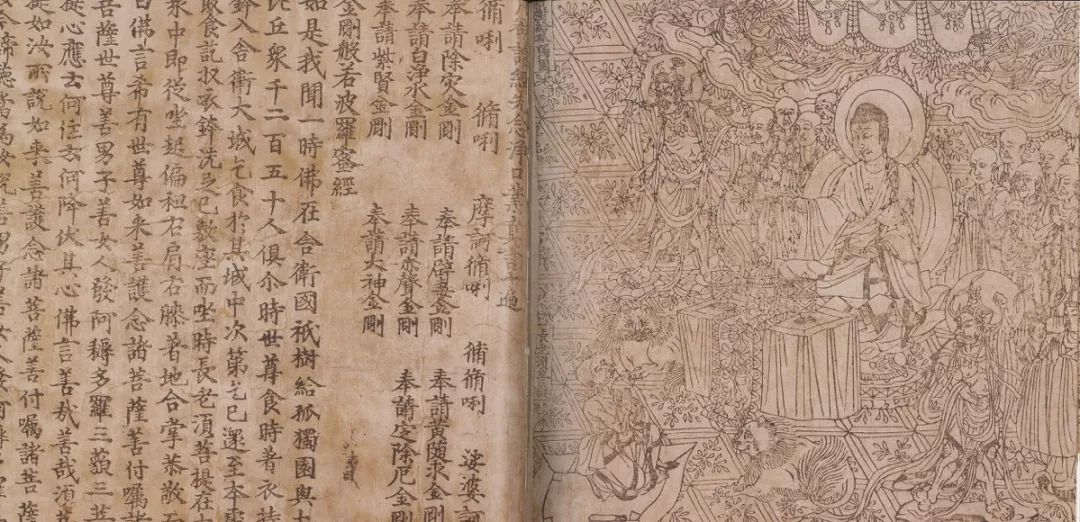 祇樹給孤獨園
長老須菩提
讀經先念淨口業真言一遍
脩唎 脩唎 摩訶脩唎 脩脩唎 娑婆訶
奉請除灾金剛 奉請辟毒金剛 奉請黃隨求金剛
奉請白淨水金剛 奉請赤聲金剛 奉請定除厄金剛
奉請紫賢金剛 奉請大神金剛
金剛般若波羅蜜經
如是我聞一時佛在舍衛國祇樹給孤獨園與大
比丘衆千二百五十人俱尒時世尊食時著衣持
鉢入舍衛大城乞食於其城中次第乞已還至本處
飯食訖収衣鉢洗足已敷座而坐時長老須菩提在大
衆中即從坐起偏袒右肩右膝著地合掌恭敬而
白佛言希有世尊如來善護念諸菩薩善付囑諸
菩薩世尊善男子善女人發阿耨多羅三藐三菩
提心應云何住云何降伏其心佛言善哉善哉湏菩
提如汝所說如来善護念諸菩薩善付囑諸菩薩
諦聽當為汝說善男子善女人發阿耨多羅